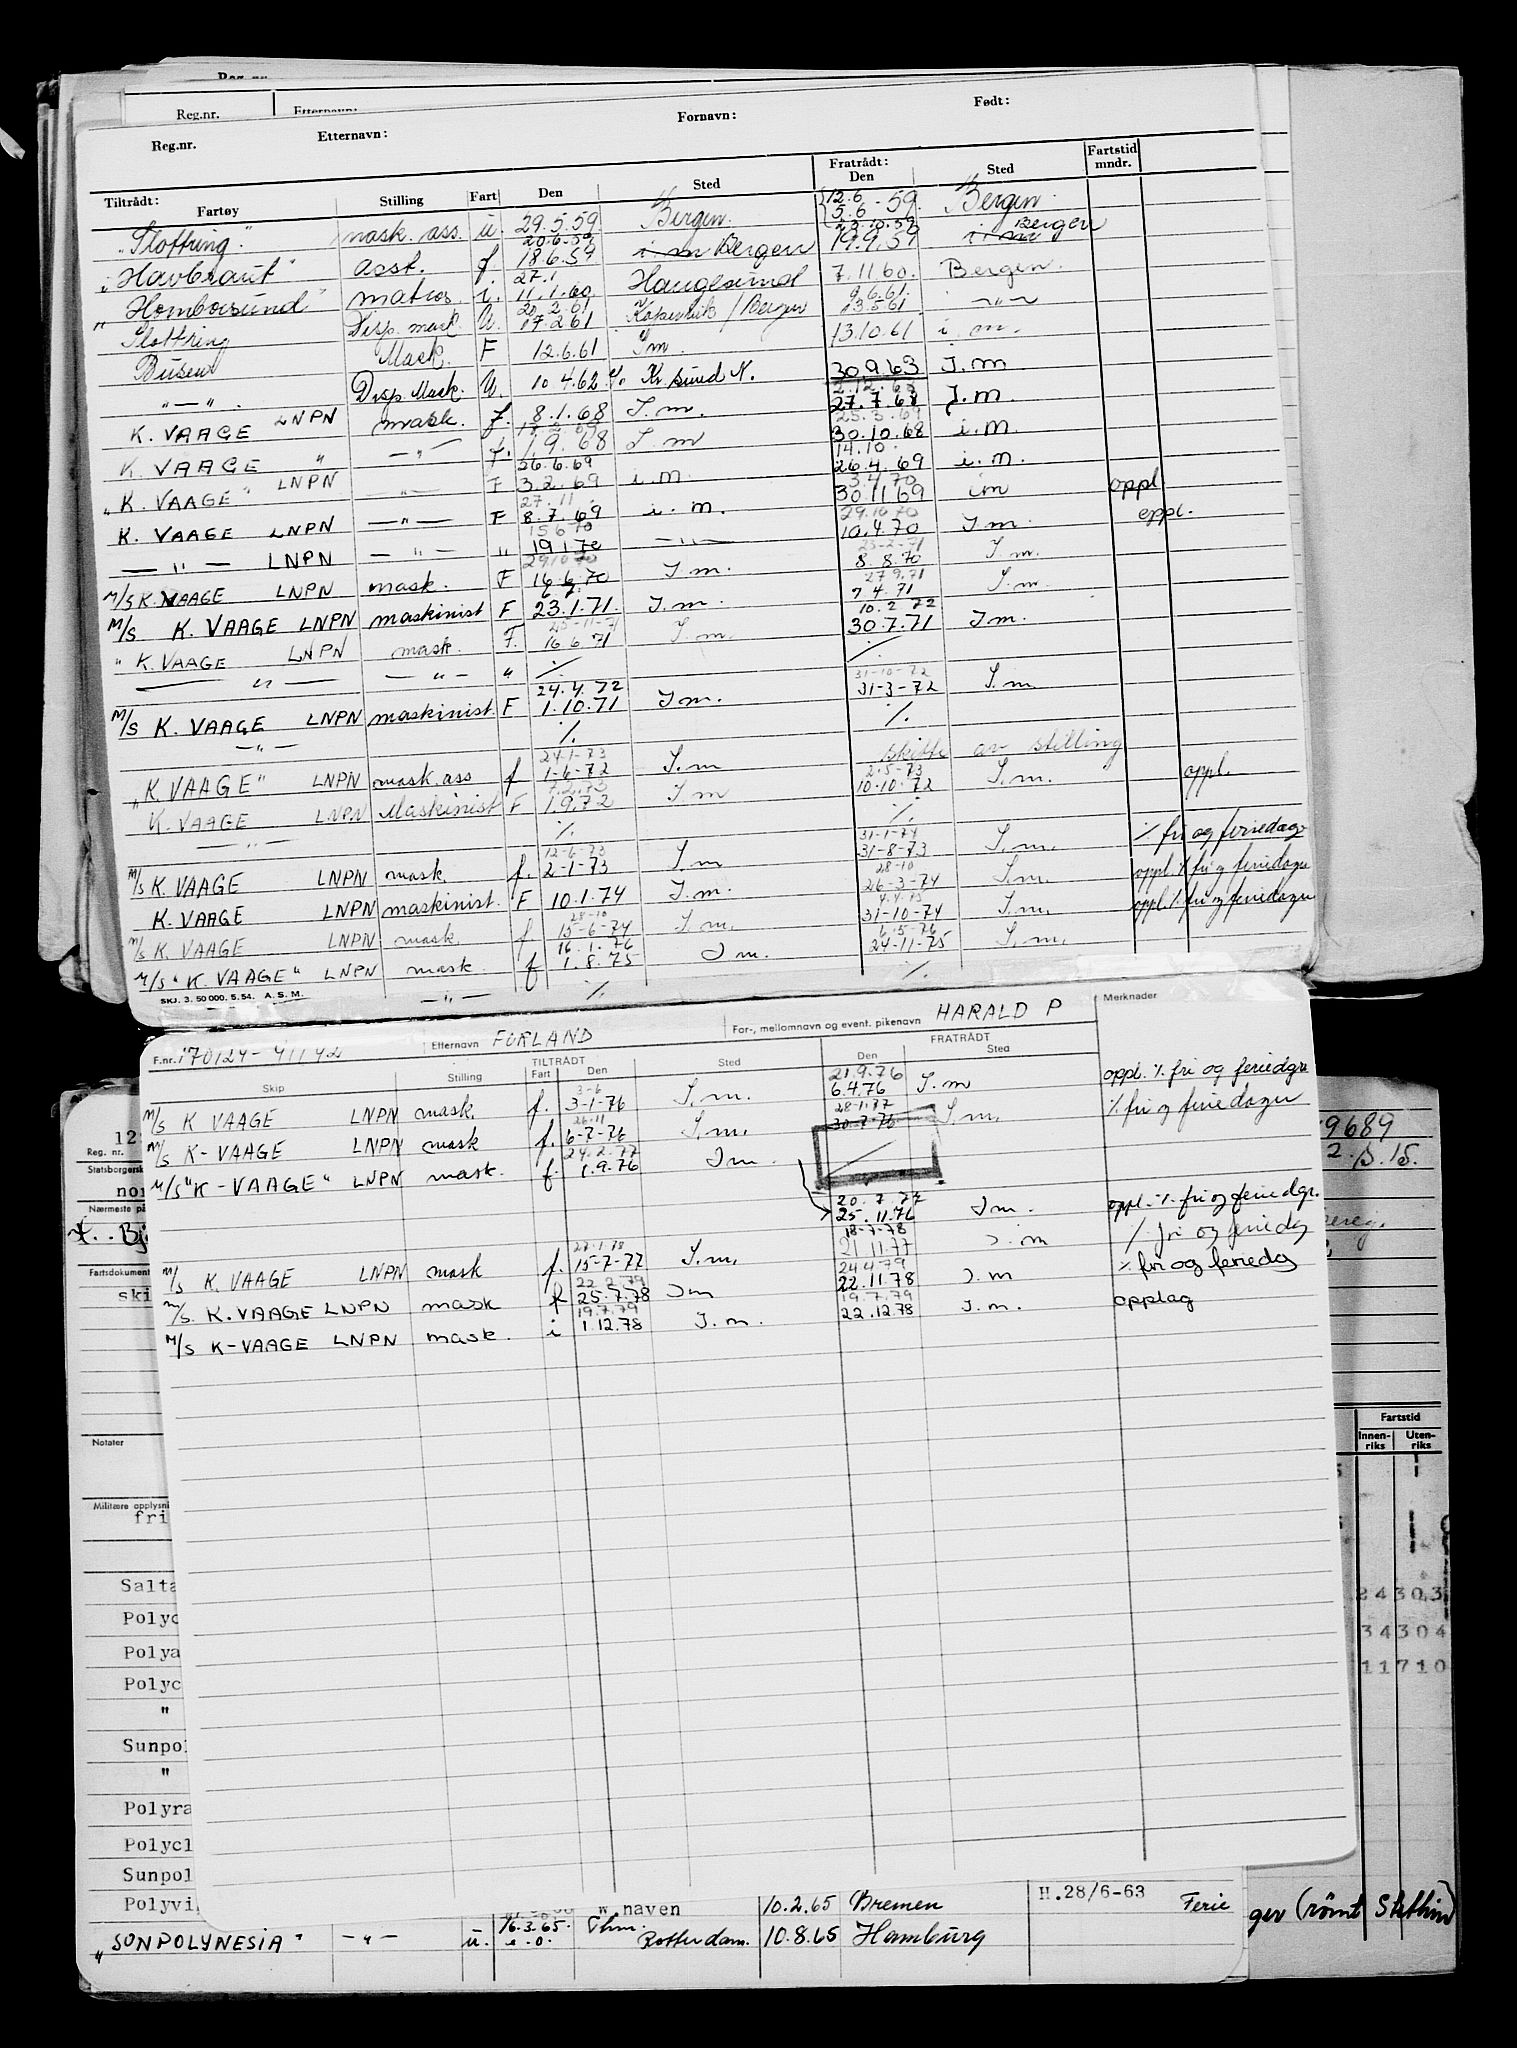 Reg.nr.
Reg.nr. Etternavn:
Reg.nr. Etternavn: Fornavn: Født:
Tiltrådt: Fratrådt: Fartstid mndr.
Fartøy Stilling Fart Den Sted Den Sted
"Flottring" mask. ass. u 29.5.59 Bergen. 12.6 5.6-59 Bergen
20.6.59 23.10.59 Bergen
"Havbraut" asst. f. 18.6.59 i m Bergen 19.9.59 i m
27.1
"Homborsund" matros. i. 11.1.60 Haugesund 7.11.60. Bergen.
20.2.61 9.6.61
Flottring Disp. mask. U. 17.2.61 Kopervik/Bergen 23.5.61 -"-
Büsen Mask. F 12.6.61 Im. 13.10.61 i. m.
-"-. Disp Mask. U. 10.4.62 Kr. sund N. 30.9.63 I.m
2.12.68
K. VAAGE LNPN mask. f. 8.1.68 I.m. 27.7.68 I.m.
25.3.69
K VAAGE " -"- f. 1.9.68 I.m 30.10.68 i.m.
26.6.69 14.10.
"K. VAAGE" LNPN -"- F 3.2.69 i.m. 26.4.69 i.m.
27.11. 3.4.70
K. VAAGE LNPN -"- F 8.7.69 i. m. 30.11 69 im oppl
15.6.70 29.10.70
-"- LNPN -"- " 19 1 70 -"- 10.4.70 I.m. oppl.
29.10.70 23-2-71
M/S K. VAAGE LNPN mask. F 16.6.70 I.m. 8.8.70 I.m.
27.9.71
M/S K. VAAGE LNPN maskinist F 23.1.71. I.m. 7.4.71 I.m.
25-11-71 10.2.72
" K. VAAGE LNPN mask. F. 16.6.71 I.m. 30.7.71 I.m.
-"- -"- " ./. ./.
24.4.72 31-10-72
M/S K. VAAGE LNPN maskinist. F 1.10.71 I.m. 31-3-72 I.m.
-"- ./. ./.
24-1-73 skifte av stilling
"K. VAAGE" LNPN mask. ass f 1-6-72 I.m 2-5-73
K. VAAGE LNPN Maskinist F 1.9.72 I m 10-10-72 I.m. oppl.
-"- ./. ./.
12-6-73 31-1-74
M/S K. VAAGE LNPN mask f. 2-1-73 I.m 31-8-73 I.m. ./. fri og feriedager
28-10
K. VAAGE LNPN maskinist. F 10.1.74 I.m. 26-3-74 I.m. oppl. ./. fri og feriedager
28-10 4.4.75
M/S K. VAAGE LNPN mask. f 15-6-74 I.m. 31-10-74 I.m. oppl. ./. fri og feriedager
16.1.76 6.5-76
M/S "K. VAAGE" LNPN mask f 1.8.75 I m. 24-11-75 I.m.
SKJ. 3. 50 000. 5. 54. A. S. M. -"- ./. ./.
F.nr. 170124-41142 Etternavn FORLAND For-, mellomnavn og event. pikenavn HARALD P Merknader
TILTRÅDT FRATRÅDT
Skip Stilling Fart Den Sted Den Sted
3-6 21.9.76
M/S K VAAGE LNPN mask. f. 3-1-76 I.m. 6.4.76 I.m oppl. ./. fri og feriedgr.
26-11 28-1.77
M/S K-VAAGE LNPN mask f. 6-7-76 I.m. 30-7-76 I.m. ./. fri og feriedager
24.2.77
M/S "K-VAAGE" LNPN mask. f. 1.9.76 Im.
20.7.77
25.11.76 I m. oppl. ./. fri og feriedgr.
27-1-78 18-7-78
M/S K. VAAGE LNPN mask f. 15-7-77 I.m. 21.11.77 I.m ./. fri og feriedg
22.2.79 24.4.79
M/S. K. VAAGE LNPN mask f 25.7.78 Im 22.11.78 I.m ./. fri og feriedg
19.7.79 19.7.79
M/S K-VAAGE LNPN mask. i 1.12.78 I.m. 22.12.78 I.m. opplag
12
Reg. nr. 9689
Statsborgersk 2.5.15.
nor
Nærmeste på
Bj
Fartsdokument
ski
Notater
Fartstid
Innenriks Utenriks
Militære opplysni
fri
Salta 24303
Polyc 34304
Polya 11710
Polyc
"
Sunpol
"
Polyra
Polycl
Sunpol
Polyvi W haven 10.2.65 Bremen H.28/6-63 Ferie
ger (rømt Stettin)
"SONPOLYNESIA" -"- u. 16.3.65. Thm. Rotterdam. 10.8.65 Hamburg